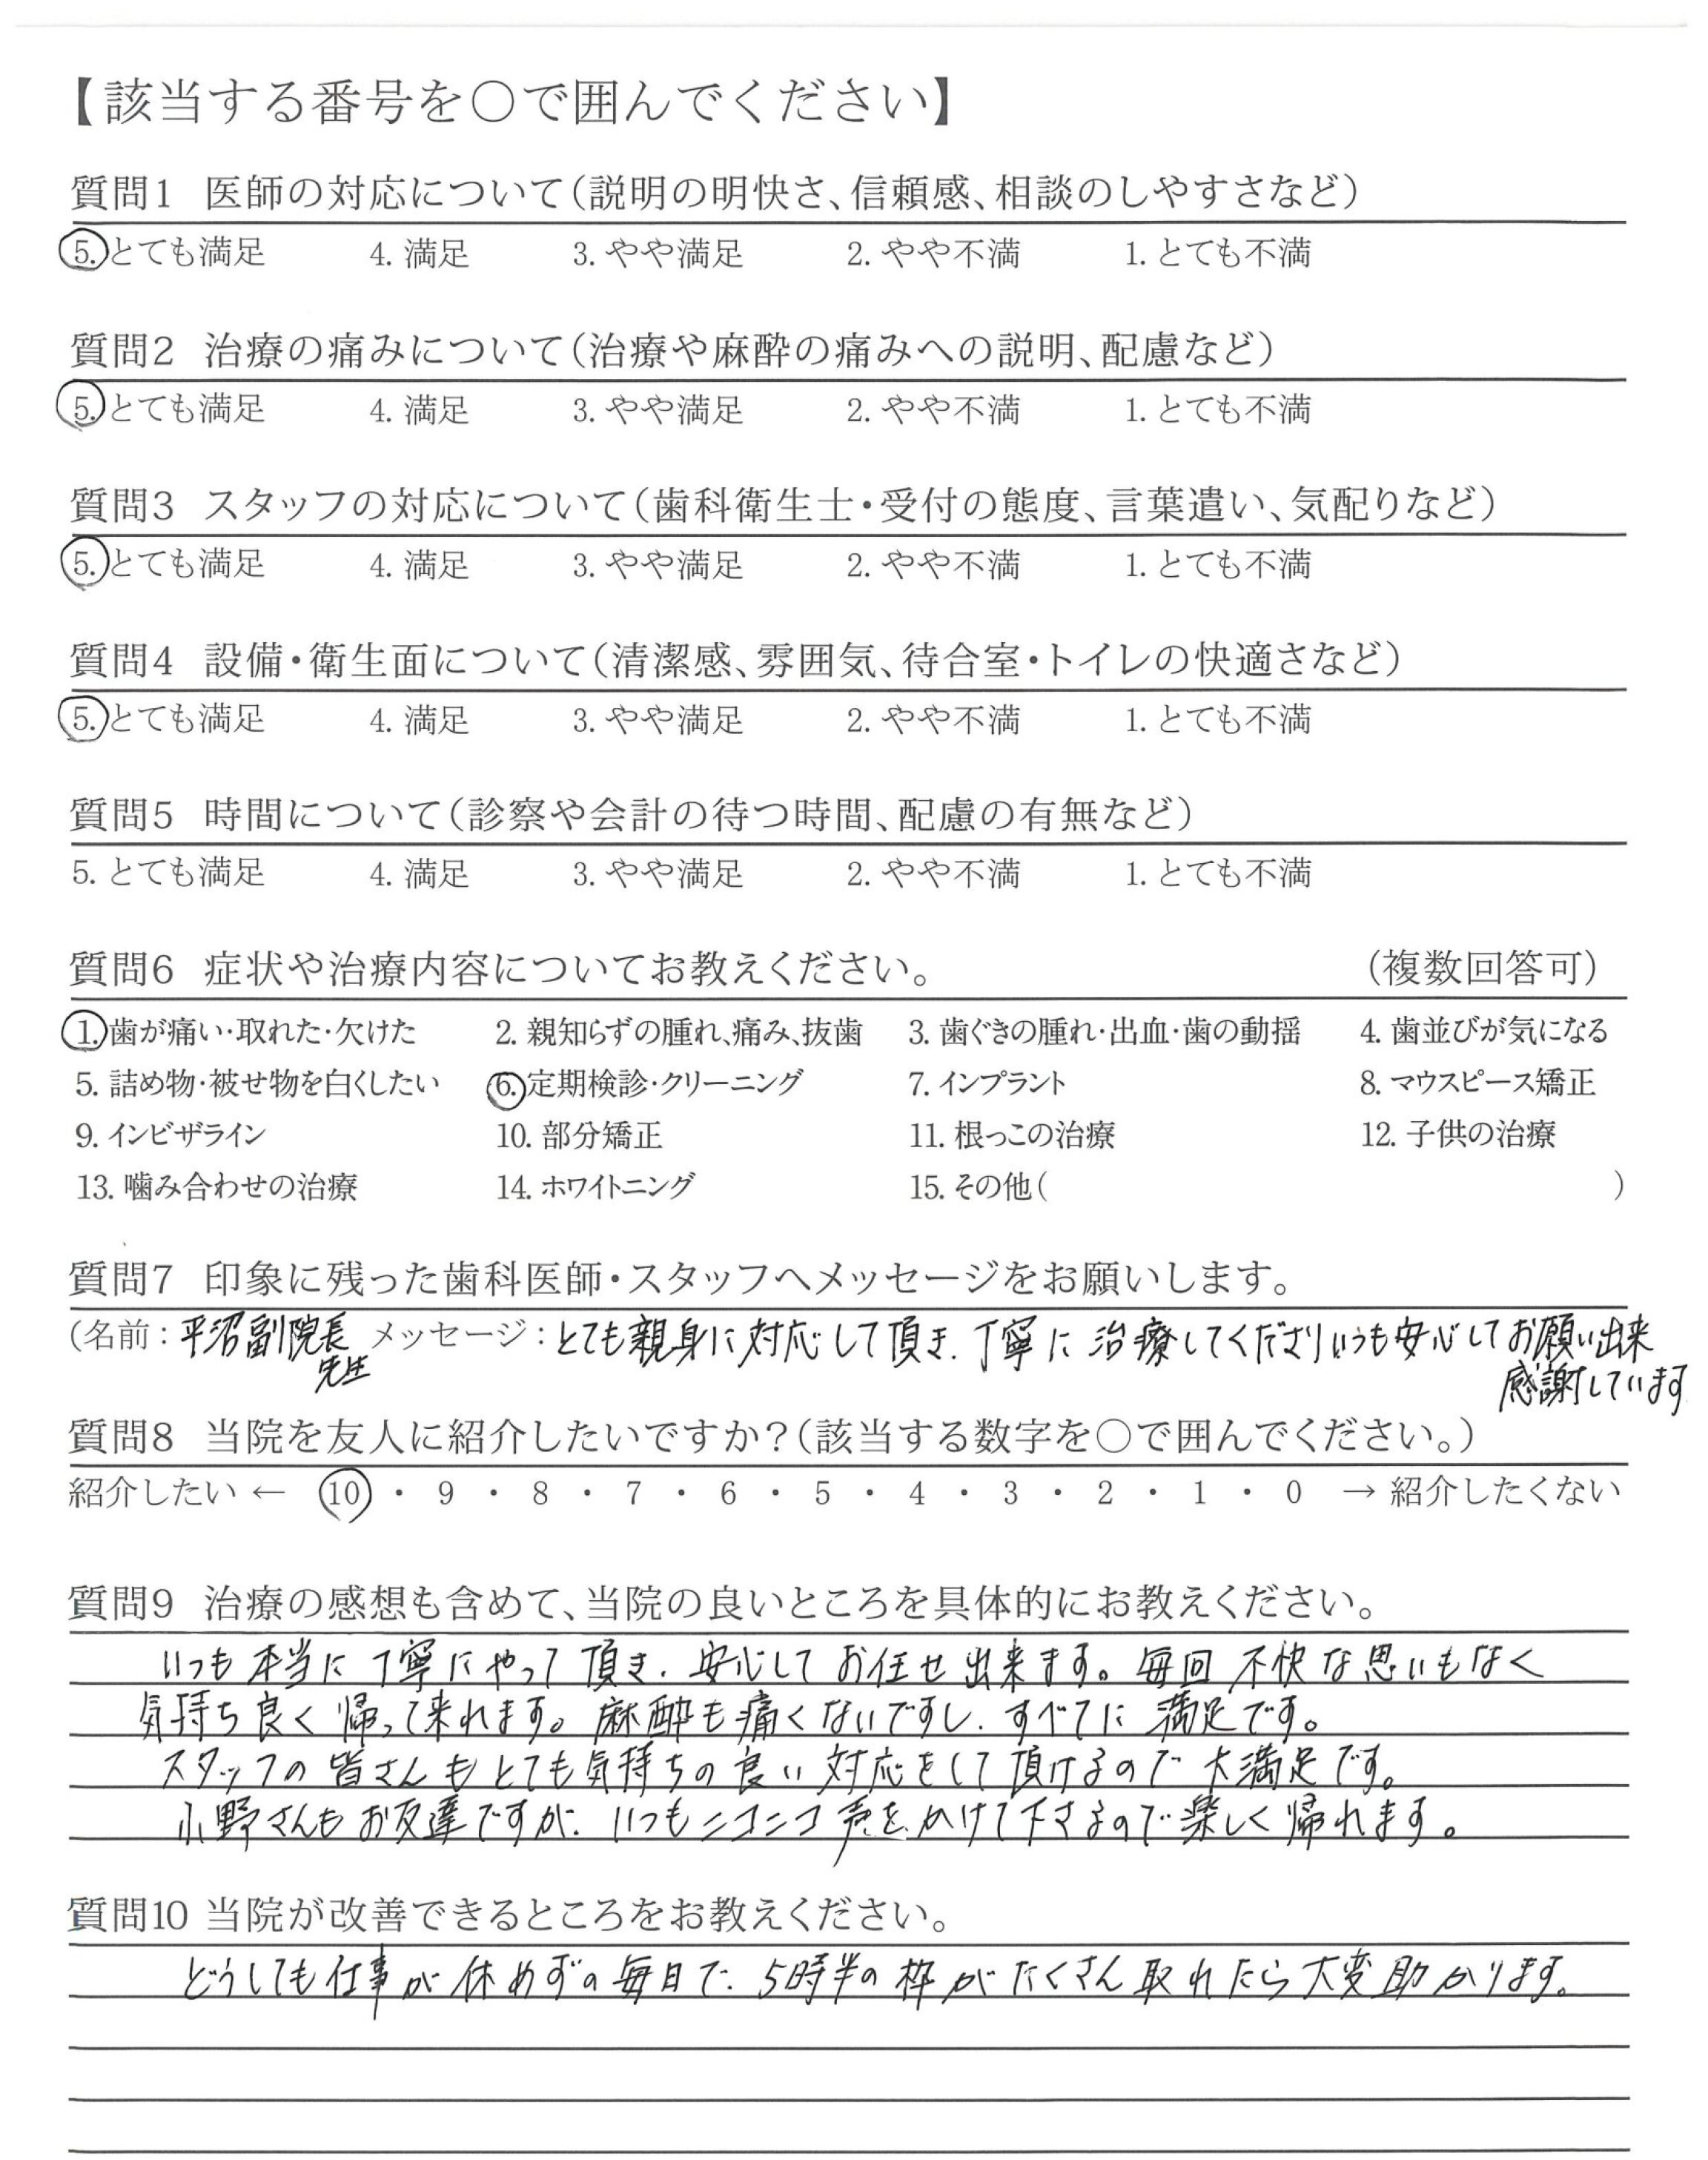 【該当する番号を○で囲んでください】
質問1 医師の対応について(説明の明快さ、信頼感、相談のしやすさなど)
5. とても満足 4. 満足 3. やや満足 2. やや不満 1. とても不満
質問2 治療の痛みについて(治療や麻酔の痛みへの説明、配慮など)
5. とても満足 4. 満足 3. やや満足 2. やや不満 1. とても不満
質問3 スタッフの対応について(歯科衛生士・受付の態度、言葉遣い、気配りなど)
5. とても満足 4. 満足 3. やや満足 2. やや不満 1. とても不満
質問4 設備・衛生面について(清潔感、雰囲気、待合室・トイレの快適さなど)
5. とても満足 4. 満足 3. やや満足 2. やや不満 1. とても不満
質問5 時間について(診察や会計の待つ時間、配慮の有無など)
5. とても満足 4. 満足 3. やや満足 2. やや不満 1. とても不満
質問6 症状や治療内容についてお教えください。 (複数回答可)
1. 歯が痛い・取れた・欠けた 2. 親知らずの腫れ、痛み、抜歯 3. 歯ぐきの腫れ・出血・歯の動揺 4. 歯並びが気になる
5. 詰め物・被せ物を白くしたい 6. 定期検診・クリーニング 7. インプラント 8. マウスピース矯正
9. インビザライン 10. 部分矯正 11. 根っこの治療 12. 子供の治療
13. 噛み合わせの治療 14. ホワイトニング 15. その他( )
質問7 印象に残った歯科医師・スタッフへメッセージをお願いします。
(名前：平沼副院長 メッセージ：とても親身に対応して頂き、丁寧に治療してくださりいつも安心してお願い出来
先生 感謝しています
質問8 当院を友人に紹介したいですか？(該当する数字を○で囲んでください。)
紹介したい ← 10 ・ 9 ・ 8 ・ 7 ・ 6 ・ 5 ・ 4 ・ 3 ・ 2 ・ 1 ・ 0 → 紹介したくない
質問9 治療の感想も含めて、当院の良いところを具体的にお教えください。
いつも本当に丁寧にやって頂き、安心してお任せ出来ます。毎回不快な思いもなく
気持ち良く帰って来れます。麻酔も痛くないですし、すべてに満足です。
スタッフの皆さんもとても気持ちの良い対応をして頂けるので大満足です。
小野さんもお友達ですが、いつもニコニコ声をかけて下さるので楽しく帰れます。
質問10 当院が改善できるところをお教えください。
どうしても仕事が休めずの毎日で、5時半の枠がたくさん取れたら大変助かります。